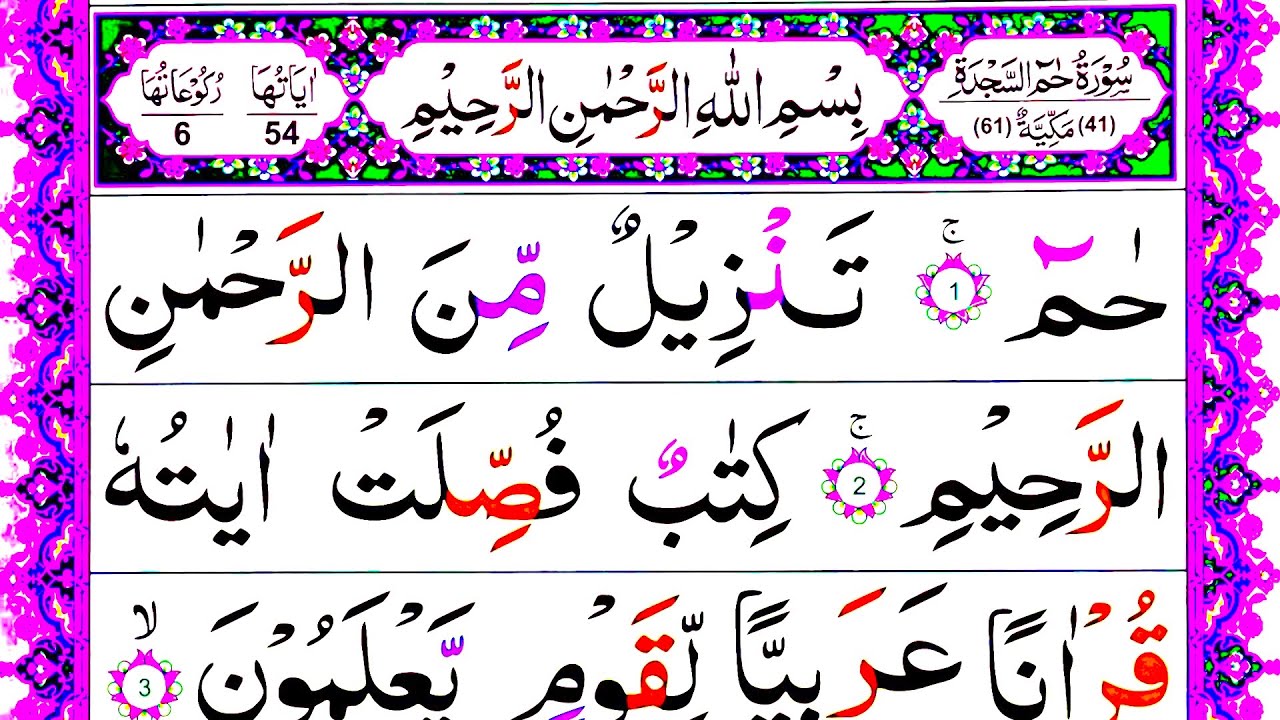 سُوْرَةُ حٰمٓ السَّجْدَةِ
(41) مَكِّيَّةٌ (61)
بِسْمِ اللّٰهِ الرَّحْمٰنِ الرَّحِيْمِ
اٰيَاتُهَا 54
رُكُوْعَاتُهَا 6
حٰمٓ ۚ 1 تَنْزِيْلٌ مِّنَ الرَّحْمٰنِ
الرَّحِيْمِ ۚ 2 كِتٰبٌ فُصِّلَتْ اٰيٰتُهٗ
قُرْاٰنًا عَرَبِيًّا لِّقَوْمٍ يَّعْلَمُوْنَ ۙ 3